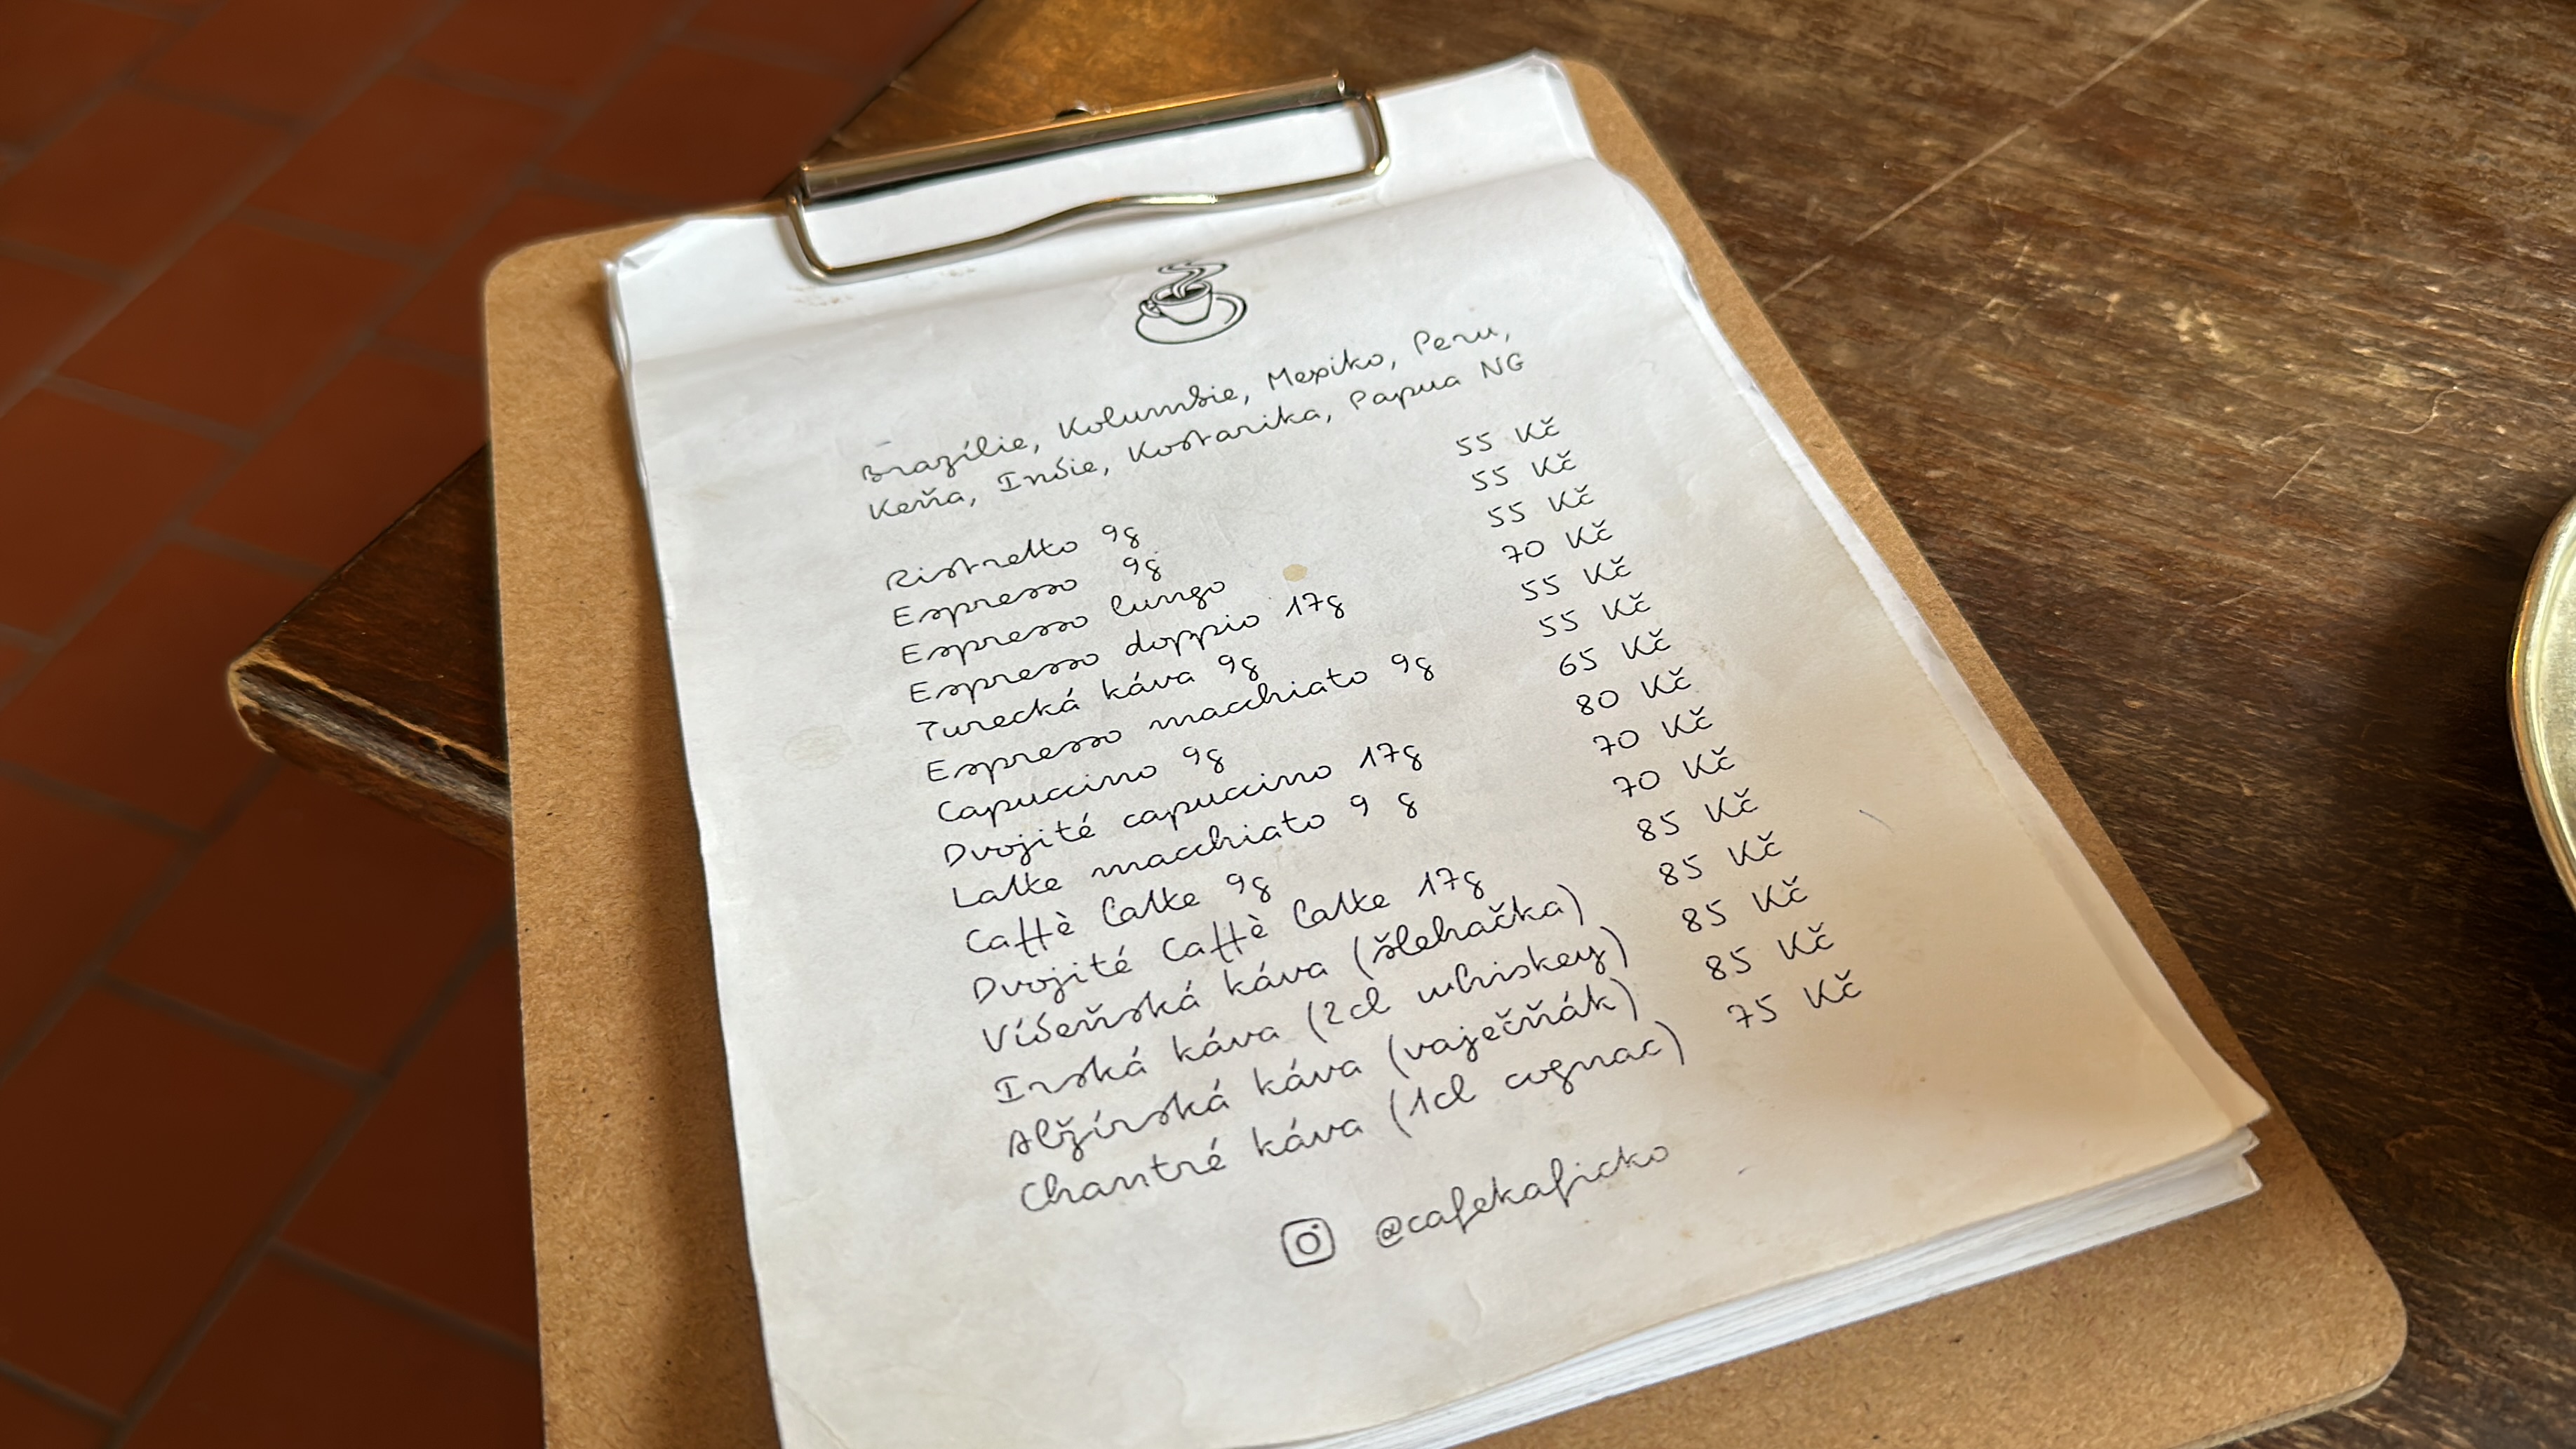 Brazílie, Kolumbie, Mexiko, Peru,
Keňa, Indie, Kostarika, Papua NG
Ristretto 9g 55 Kč
Espresso 9g 55 Kč
Espresso lungo 55 Kč
Espresso doppio 17g 70 Kč
Turecká káva 9g 55 Kč
Espresso macchiato 9g 55 Kč
Capuccino 9g 65 Kč
Dvojité capuccino 17g 80 Kč
Latte macchiato 9 g 70 Kč
Caffè latte 9g 70 Kč
Dvojité Caffè latte 17g 85 Kč
Vídeňská káva (šlehačka) 85 Kč
Irská káva (2cl whiskey) 85 Kč
Alžírská káva (vaječňák) 85 Kč
Chantré káva (1cl cognac) 75 Kč
@cafekaficko